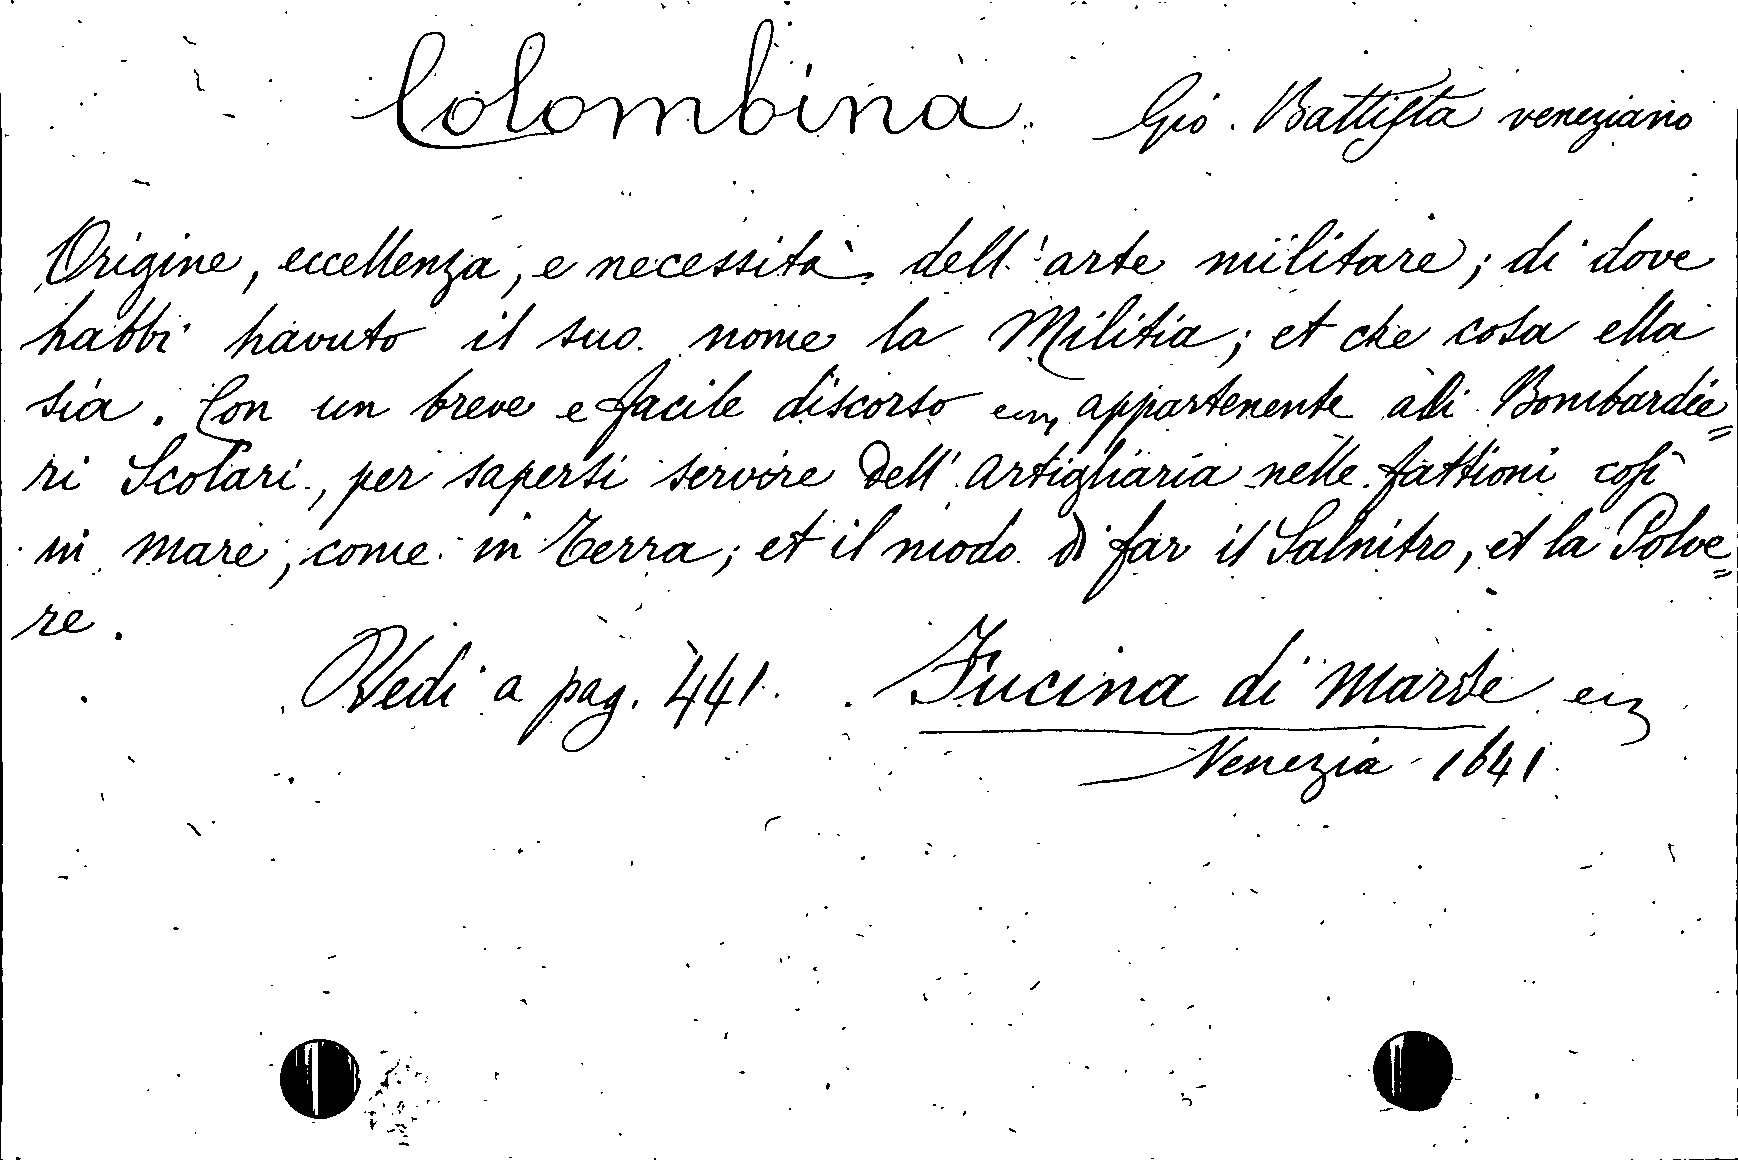 Colombina. Gio. Battista veneziano
Origine, eccellenza, e necessità dell'arte militare; di dove
habbi havuto il suo nome la Militia; et che cosa ella
sia. Con un breve e facile discorso appartenente alli Bombardie=
ri Scolari, per sapersi servire dell'Artigliaria nelle fattioni così
in mare, come in Terra; et il modo di far il Salnitro, et la Polve=
re.
Vedi a pag. 441. Fucina di Marte
Venezia 1641